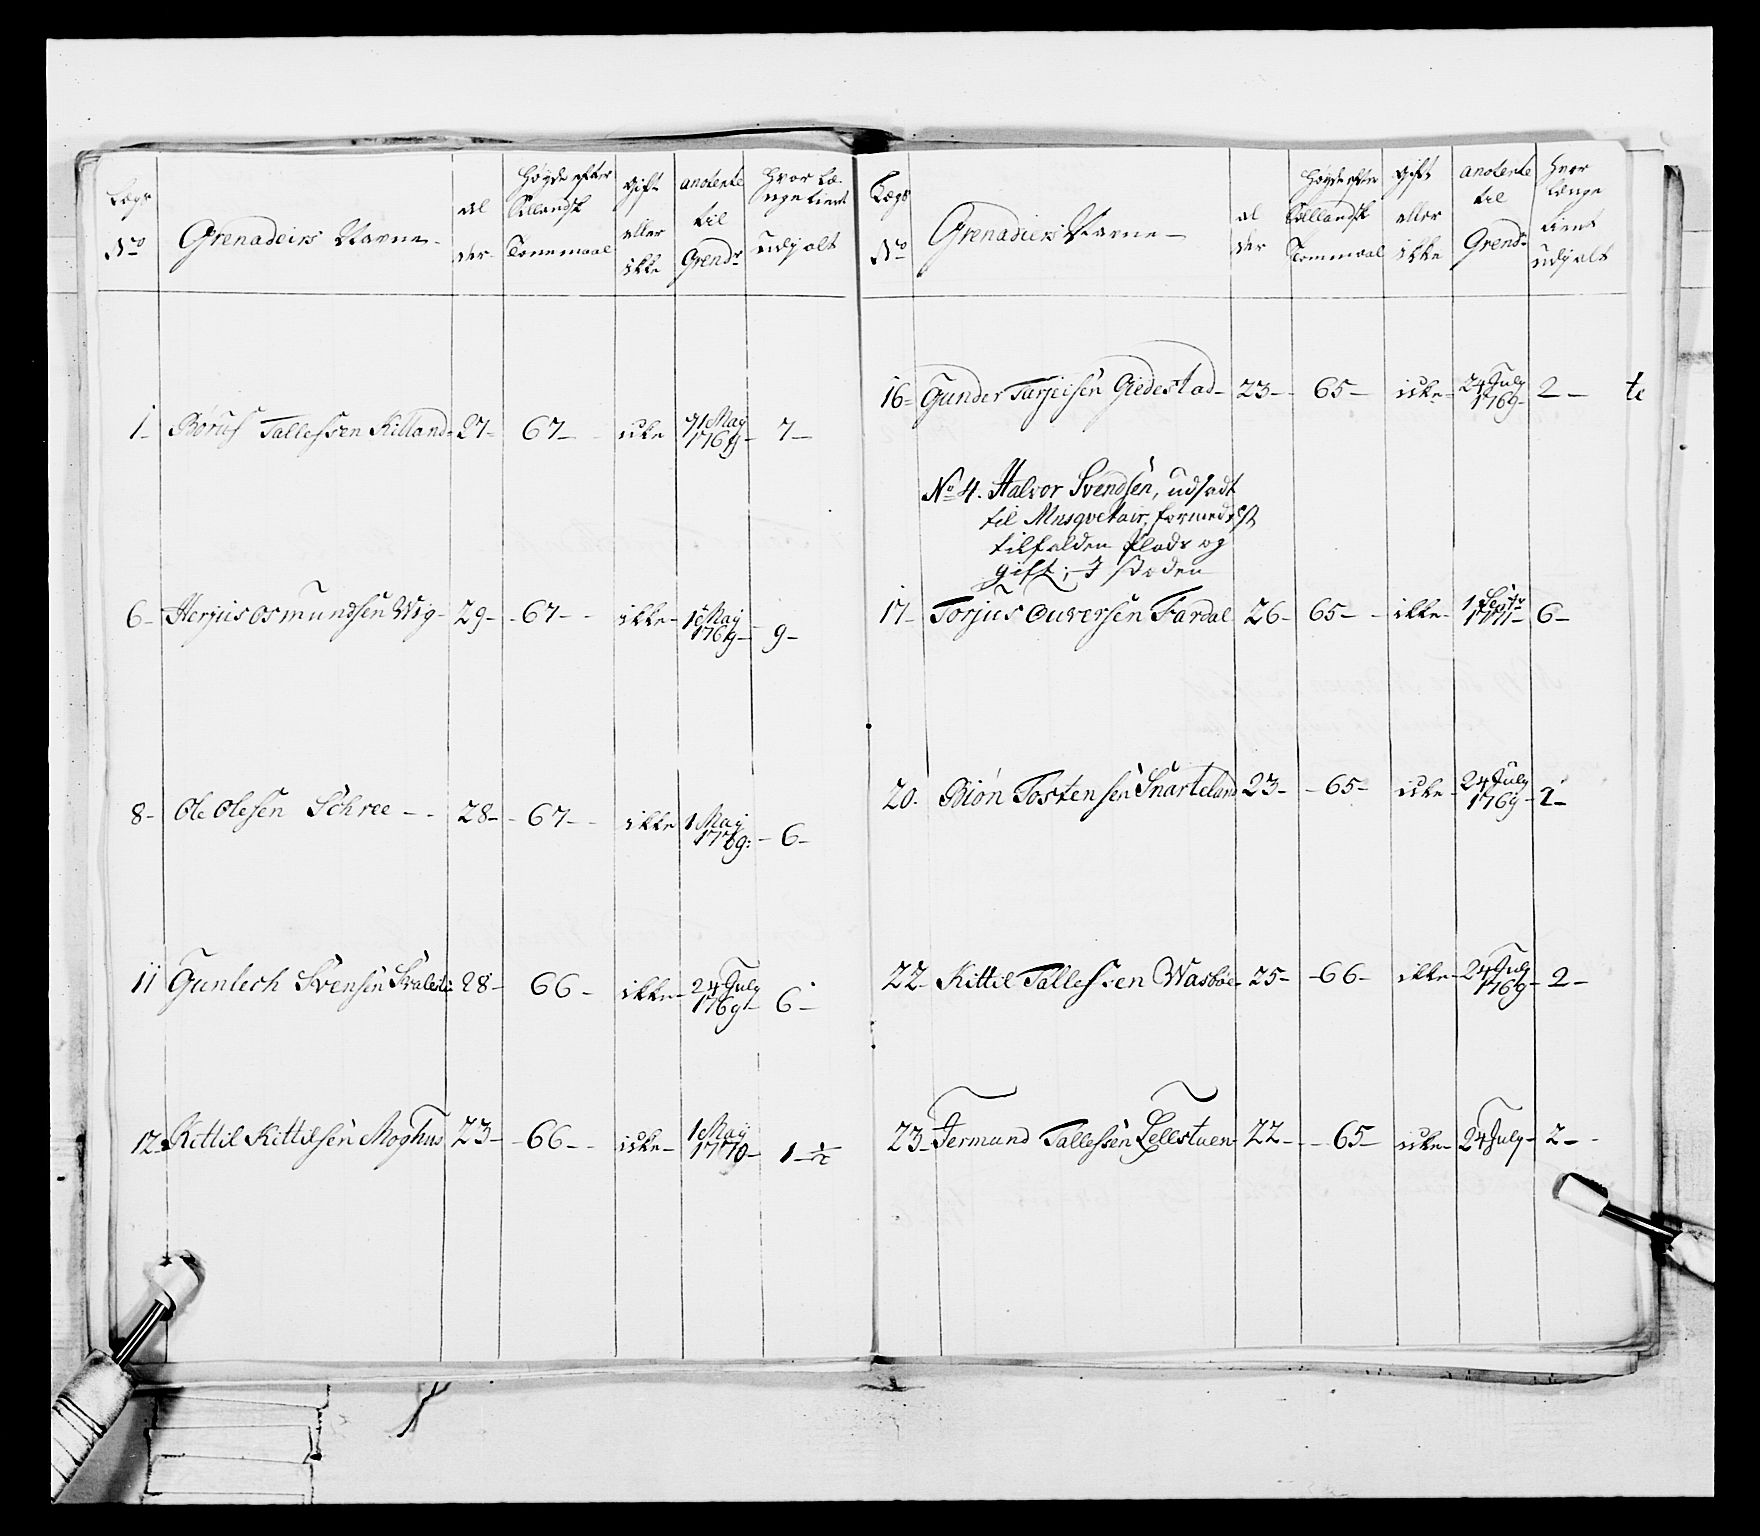 Lægs No
Grenadeirs Navne
al der
Høyde efter Sellandsk Tommaal
gift eller ikke
andtente til Grendr
Hvor længe tient udj alt
1 Tallefssen Killand 27 67 ikke 1 May 7
6 Herjus Osmundsen Wig 29 67 ikke 1 May 1769 9
8 Ole Olesen Schree 28 67 ikke 1 May 6
11 Gunlech Svensen 28 66 ikke 24 July 1769 6
12 Kittil Kittilsen Moghus 23 66 ikke 1 May 1770 1 ½
Lægs No
Grenadiers Navne
al der
Høyde efter Sellandsk Tommaal
gift eller ikke
andtente til Grendr
Hvor længe tient udj alt
16 Gunder Tarjeisen Giedestad 23 65 ikke 24 July 1769 2
te
No 4. Halvor Svendsen, udsadt
til Musqvetair, formedelst
tilfalden Skade og
gift; I Stæden
17 Torjus Ouversen Fardal 26 65 ikke 1 Septr 1771 6
20. Biøn Tostensen Snarteland 23 65 ikke 24 July 1769 2
22 Kittil Tallefssen Wasböe 25 66 ikke 24 July 1769 2
23 Jermund Tallefssen 22 65 ikke 24 July 2